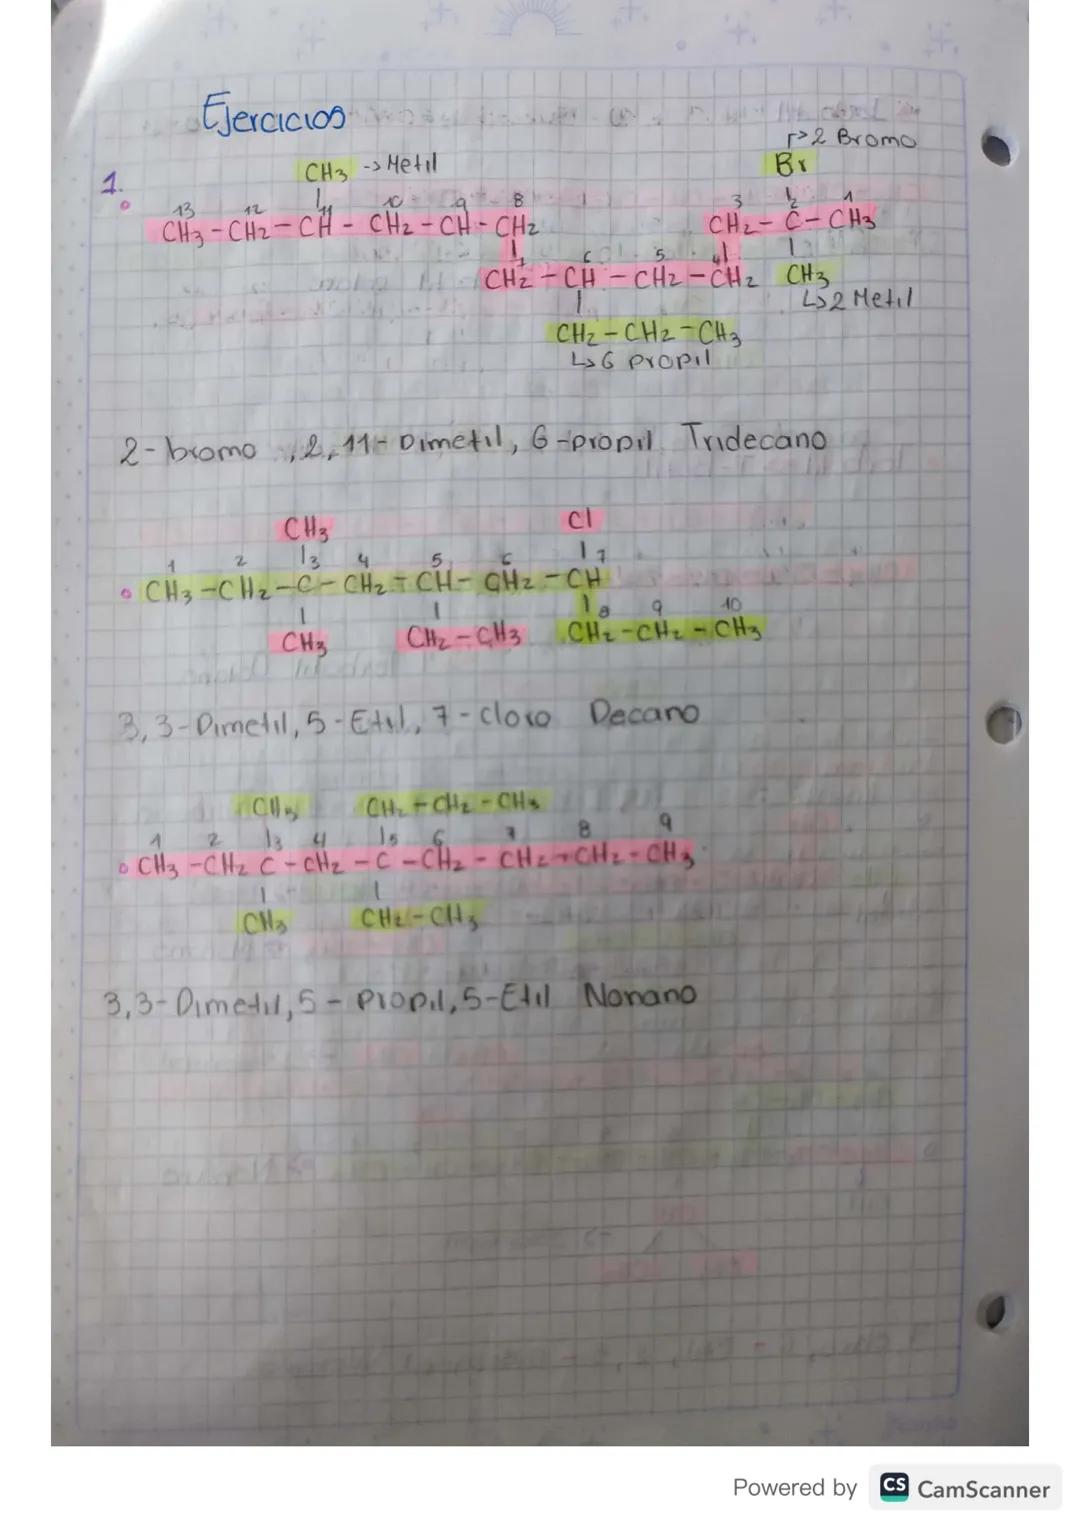 Ejercicios
r>2 Bromo
1. CH3 -> Metil Br
13 12 11 10 9 8 3 2 1
CH3 - CH2 - CH - CH2 - CH - CH2 CH2 - C - CH3
7 6 5 4
CH2 - CH - CH2 - CH2 CH3
↳2 Metil
CH2 - CH2 - CH3
↳6 propil
2-bromo , 2, 11- Dimetil, 6-propil Tridecano
CH3 Cl
1 2 3 4 5 6 7
CH3 - CH2 - C - CH2 - CH - CH2 - CH
8 9 10
CH3 CH2 - CH3 CH2 - CH2 - CH3
3,3-Dimetil, 5-Etil, 7-cloro Decano
CH3 CH2 - CH2 - CH3
1 2 3 4 5 6 7 8 9
CH3 - CH2 C - CH2 - C - CH2 - CH2 - CH2 - CH3
CH3 CH2 - CH3
3,3-Dimetil, 5 - Propil, 5-Etil Nonano
Powered by CS CamScanner